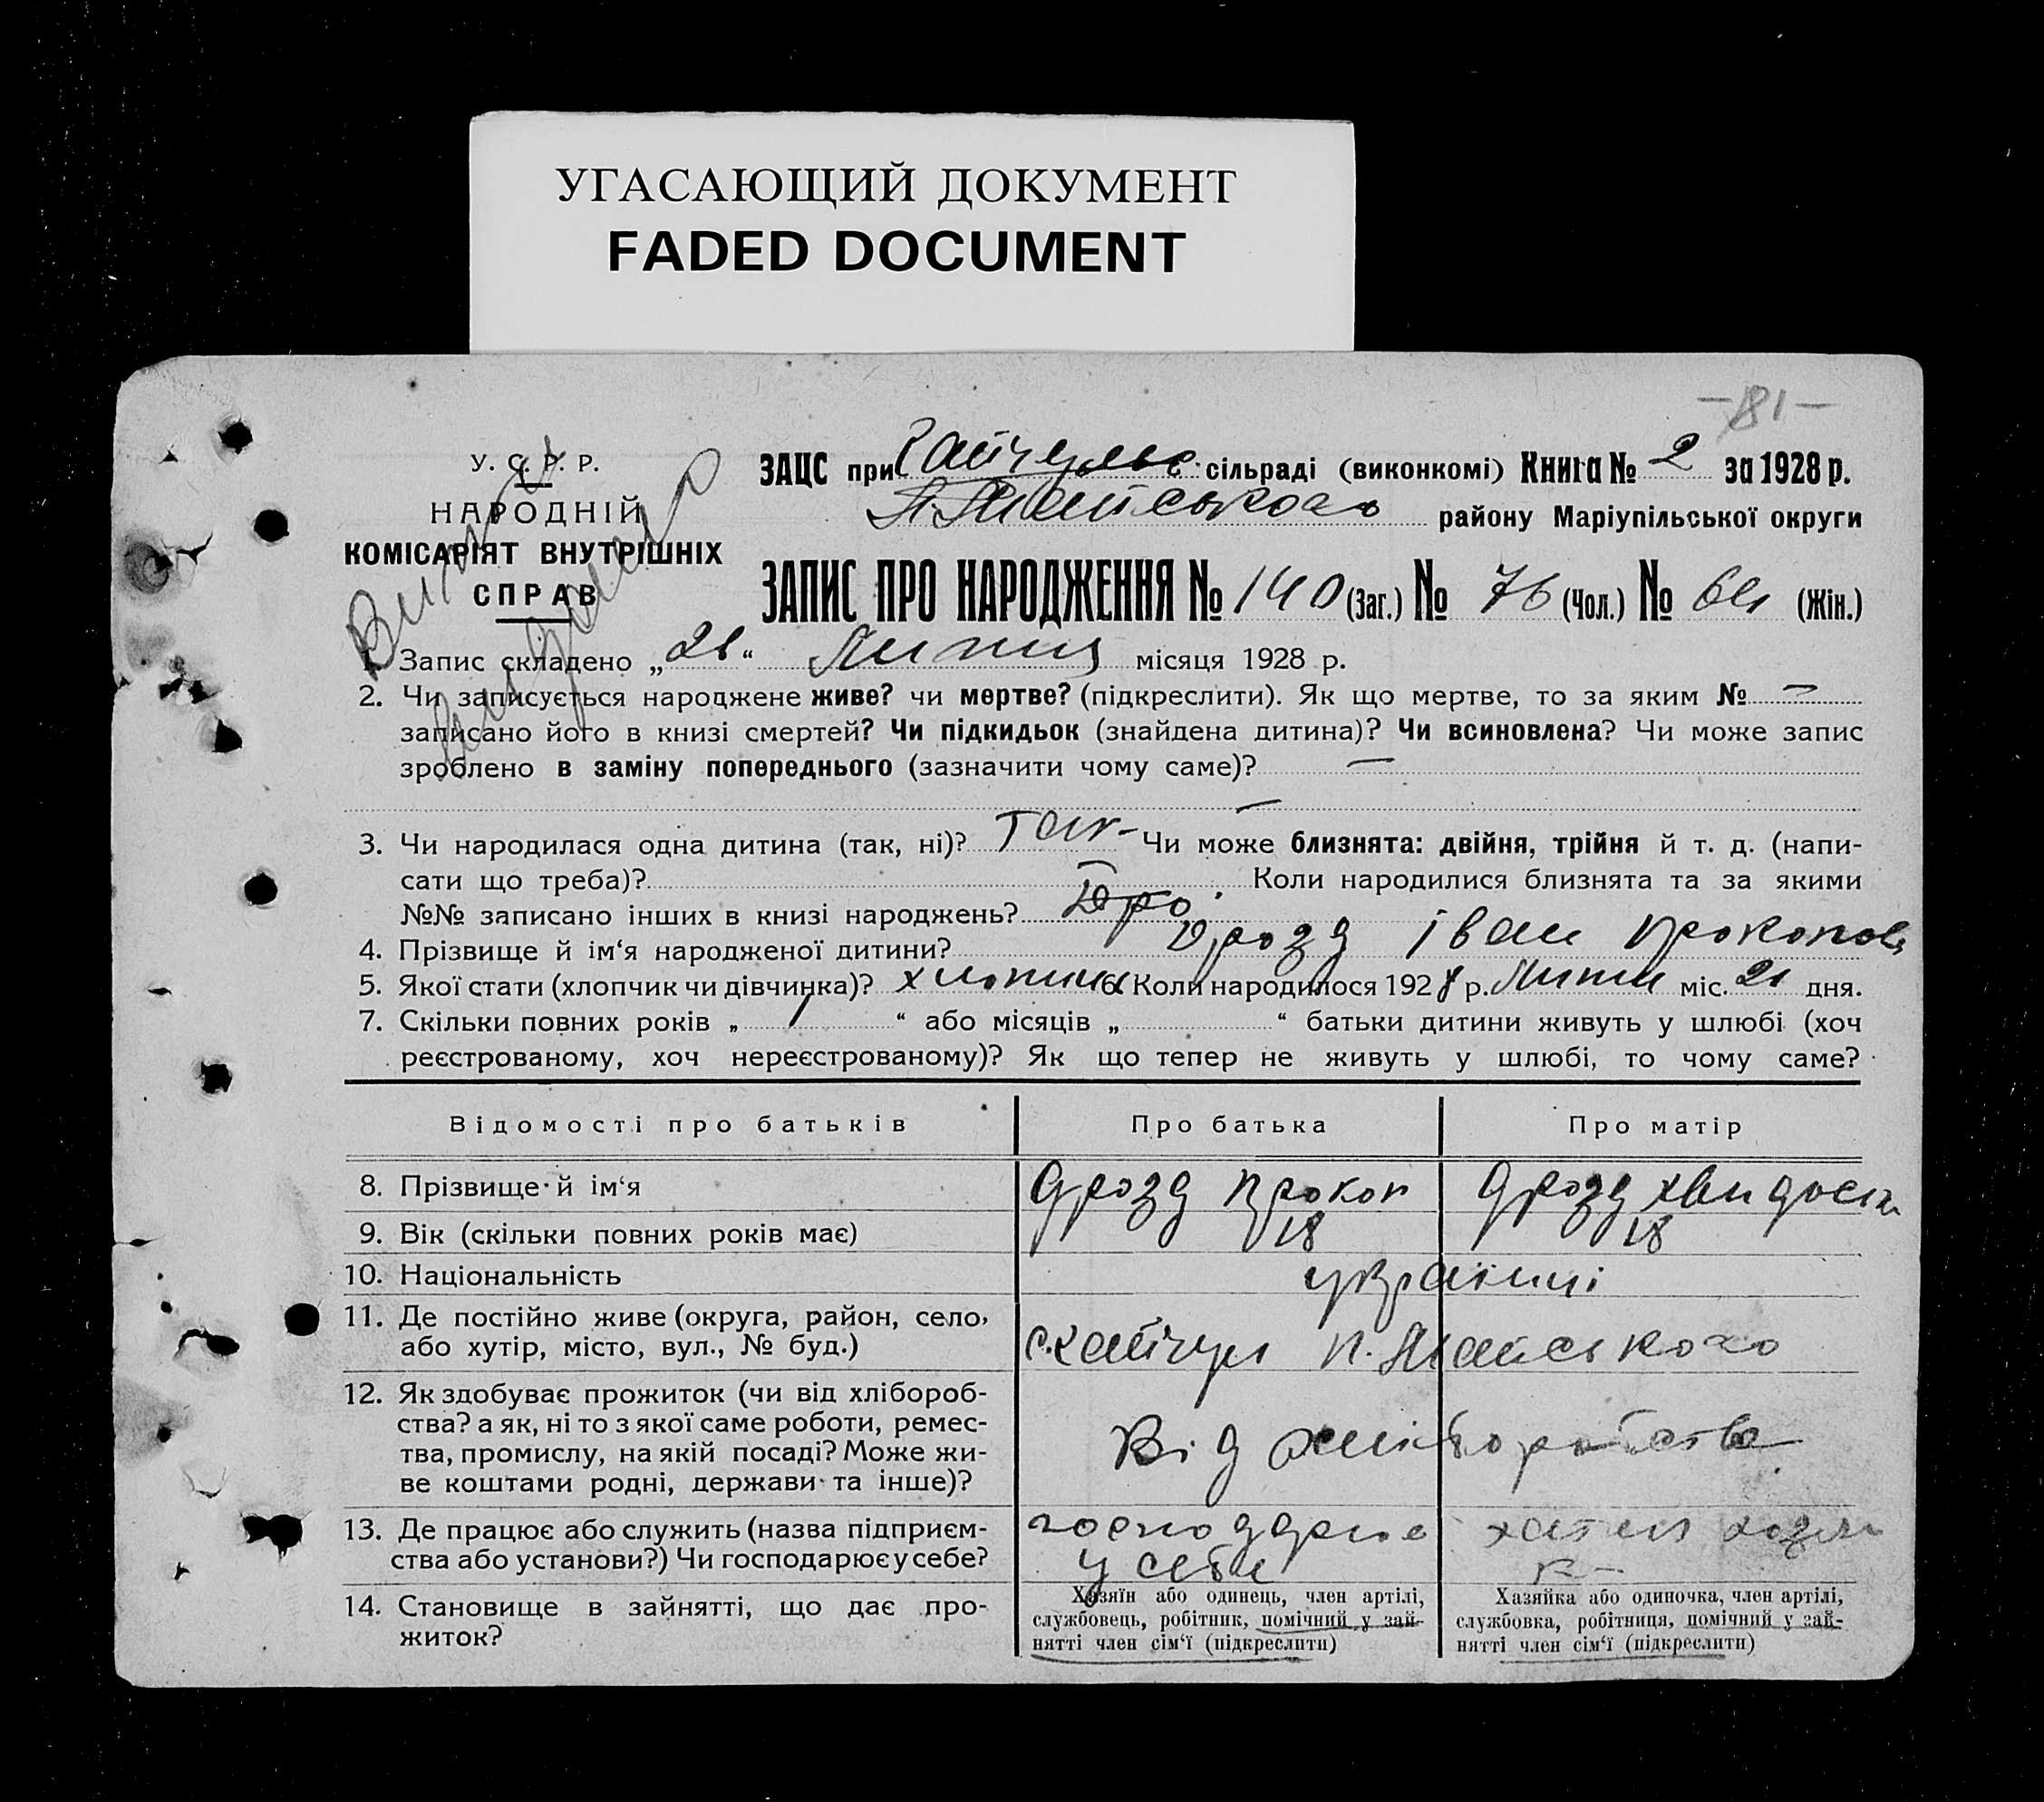 УГАСАЮЩИЙ ДОКУМЕНТ
FADED DOCUMENT
-181-
У. С. Р. Р.
НАРОДНІЙ
КОМІСАРІЯТ ВНУТРІШНІХ
СПРАВ
ЗАЦС при Гайчульс. сільраді (виконкомі) Книга № 2 за 1928 р.
П. Майського району Маріупільської округи
ЗАПИС ПРО НАРОДЖЕННЯ № 140 (Заг.) № 76 (Чол.) № 64 (Жін.)
1. Запис складено „ “ Липня місяця 1928 р.
2. Чи записується народжене живе? чи мертве? (підкреслити). Як що мертве, то за яким № —
записано його в книзі смертей? Чи підкидьок (знайдена дитина)? Чи всиновлена? Чи може запис
зроблено в заміну попереднього (зазначити чому саме)? —
—
3. Чи народилася одна дитина (так, ні)? Так - Чи може близнята: двійня, трійня й т. д. (напи-
сати що треба)? — Коли народилися близнята та за якими
№№ записано інших в книзі народжень? Дро
4. Прізвище й ім‘я народженої дитини? Дрозд Іван Прокопов
5. Якої стати (хлопчик чи дівчинка)? хлопчик 6. Коли народилося 1928 р. Липня міс. 21 дня.
7. Скільки повних років „ 1 “ або місяців „ “ батьки дитини живуть у шлюбі (хоч
реєстрованому, хоч нереєстрованому)? Як що тепер не живуть у шлюбі, то чому саме?
Відомості про батьків Про батька Про матір
8. Прізвище й ім‘я Дрозд Прокоп Дрозд Хвидосія
9. Вік (скільки повних років має) 18 18
10. Національність українці
11. Де постійно живе (округа, район, село,
або хутір, місто, вул., № буд.) с. Гайчул П. Майського
12. Як здобуває прожиток (чи від хлібороб-
ства? а як, ні то з якої саме роботи, ремес-
тва, промислу, на якій посаді? Може жи-
ве коштами родні, держави та інше)? Від хліборобства
13. Де працює або служить (назва підприєм-
ства або установи?) Чи господарює у себе? господарює у себе
14. Становище в зайнятті, що дає про-
житок?
Хазяїн або одинець, член артілі,
службовець, робітник, помічний у зай-
нятті член сім‘ї (підкреслити)
Хазяйка або одиночка, член артілі,
службовка, робітниця, помічний у зай-
нятті член сім‘ї (підкреслити)